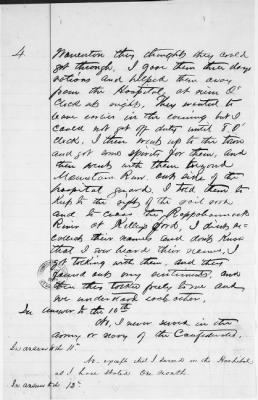 4
Warrenton they thought they could
get through. I gave them three days
rations and helped them away
from the Hospital, at nine O'
Clock at night. They wanted to
leave earlier in the evening but I
could not get off duty until 8 O'
clock. I then went up to the town
and got some spirits for them, and
then went with them beyond
Mountain Run, outside of the
hospital guard. I told them to
keep to the right of the rail road
and to cross the Rappahannock
River at Kellys Ford. I didn't
their names and don't know
that I ever heard their names. I
got talking with them, and they
found out my sentiments, and
then they talked freely to me and
we understood each other.
In answer to the 10th
No, I never served in the
army or navy of the Confederates.
In answer to the 11th
No. except that I served in the Hospital
as I have stated one month
In answer to the 12th